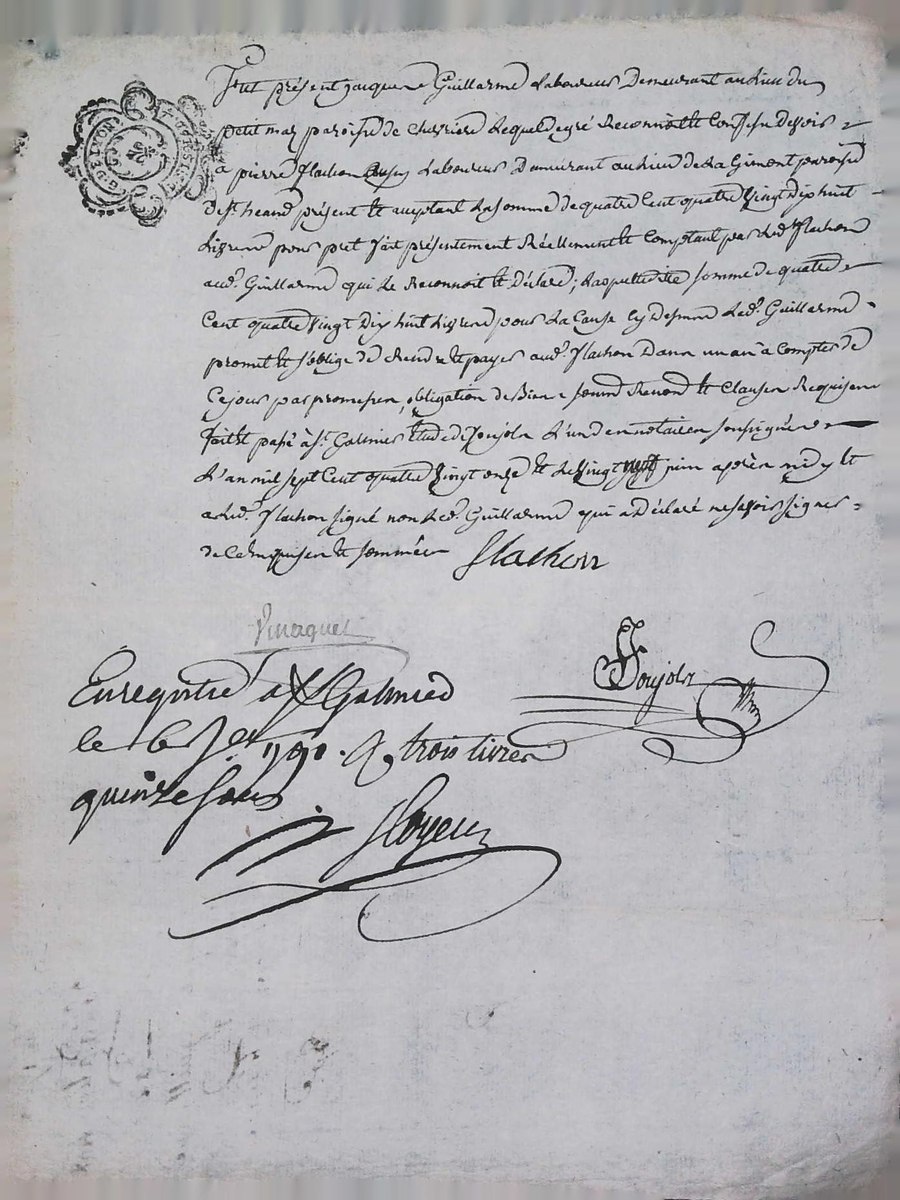 Fut présent jacques Guillarme Laboureur Demeurant au Lieu du
petit maz paroisse de Chevriere Lequel de gré Reconnoît Et Confesse Devoir
a pierre flachon Laboureur Demeurant au Lieu de La Gimont paroisse
de St heand présent Et acceptant La somme de quatre Cent quatre Vingt Dix huit
Livres pour pret fait présentement Réellement Et Comptant par Led. flachon
aud. Guillarme qui Le Reconnoit Et Déclare; Laquelle somme de quatre
Cent quatre Vingt Dix huit Livres pour La Cause Cy Dessus Led. Guillarme
promet Et s'oblige de Rendre Et payer aud. flachon Dans un an à Compter de
Ce jour par promesses, obligation de Biens soumis Renon Et Clauses Requises
fait Et passé à St. Galmier Etude de Poujols L'un des notaires soussignés
L'an mil sept Cent quatre Vingt onze Et Le Vingt neuf juin après midy Et
a Led. flachon signé non Led. Guillarme qui a Déclaré ne savoir signer
de Ce Enquis Et sommés flachon
Poujols
Enregistré a St Galmier
le trois livres
quinze sous